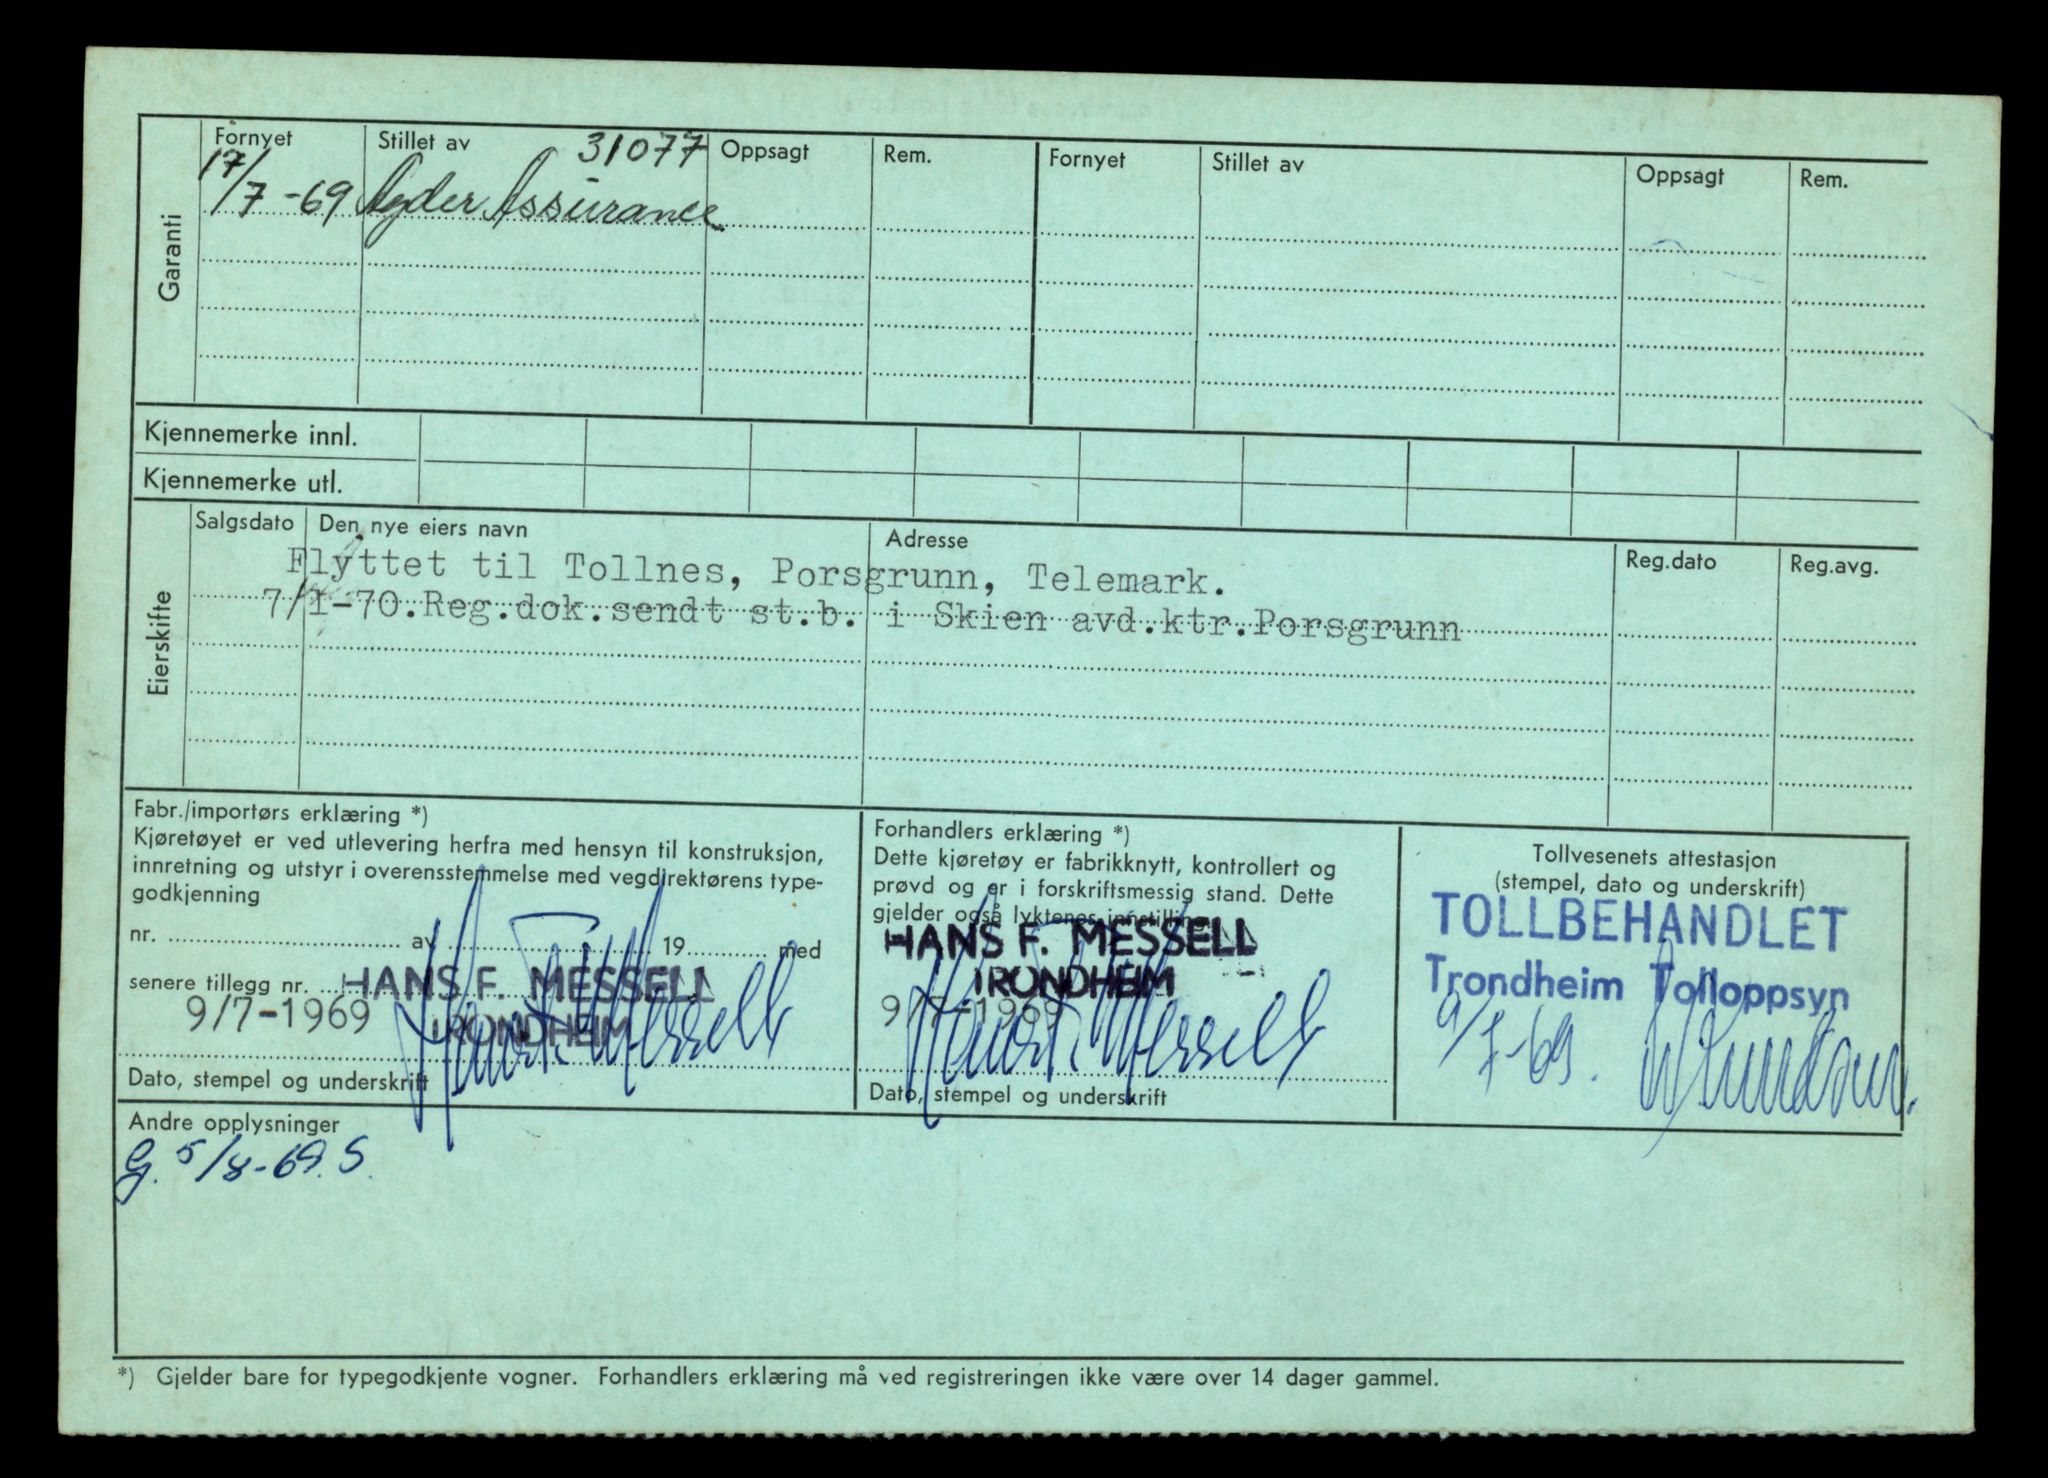 Fornyet Stillet av 31077 Oppsagt Rem. Fornyet Stillet av Oppsagt Rem.
17/7-69 Agder Assurance
Garanti
Kjennemerke innl.
Kjennemerke utl.
Salgsdato Den nye eiers navn Adresse Reg.dato Reg.avg.
Flyttet til Tollnes, Porsgrunn, Telemark.
7/1-70.Reg.dok.sendt st.b. i Skien avd.ktr.Porsgrunn
Eierskifte
Fabr./importørs erklæring *)
Kjøretøyet er ved utlevering herfra med hensyn til konstruksjon,
innretning og utstyr i overensstemmelse med vegdirektørens type-
godkjenning
nr. av 19 med
senere tillegg nr.
HANS F. MESSELL
TRONDHEIM
9/7-1969
Dato, stempel og underskrift
Forhandlers erklæring *)
Dette kjøretøy er fabrikknytt, kontrollert og
prøvd og er i forskriftsmessig stand. Dette
gjelder også lyktenes innstilling
HANS F. MESSELL
TRONDHEIM
9/7-1969
Dato, stempel og underskrift
Tollvesenets attestasjon
(stempel, dato og underskrift)
TOLLBEHANDLET
Trondheim Tolloppsyn
9/7-69.
Andre opplysninger
G. 5/8-69. S.
*) Gjelder bare for typegodkjente vogner. Forhandlers erklæring må ved registreringen ikke være over 14 dager gammel.